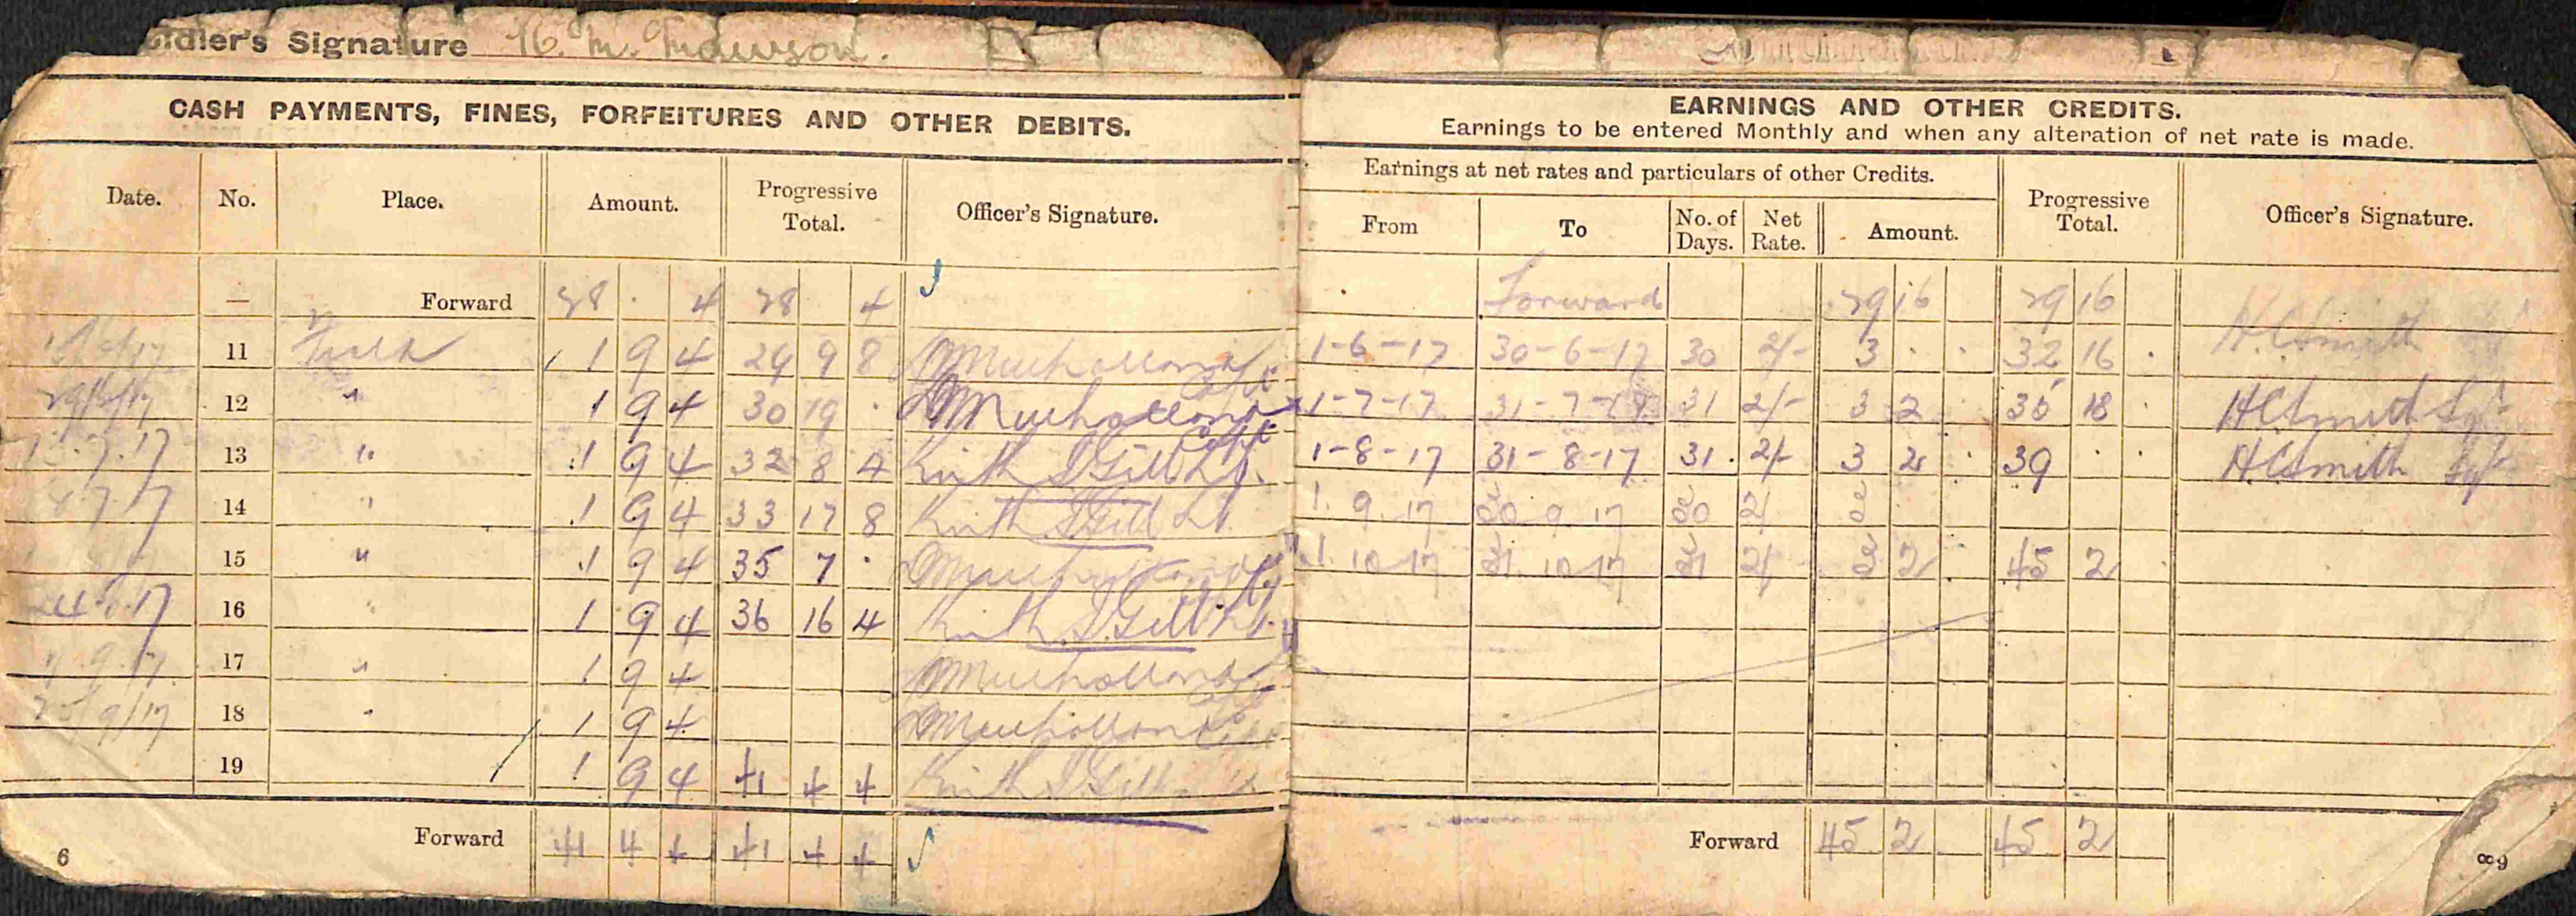 oldier's Signature
CASH PAYMENTS, FINES, FORFEITURES AND OTHER DEBITS.
Date. No. Place. Amount. Progressive Total. Officer's Signature.
— Forward 28 · 4 28 4
11 Field 1 9 4 29 9 8 Mulholland Capt
29/6/17 12 " 1 9 4 30 19 · Mulholland Capt
13 " 1 9 4 32 8 4 Keith S Gill Lt.
14 " 1 9 4 33 17 8 Keith S Gill Lt.
15 " 1 9 4 35 7 · Mulholland
16 " 1 9 4 36 16 4 Keith S. Gill Lt.
17 " 1 9 4 Mulholland
25/9/17 18 " 1 9 4 Mulholland
19 1 9 4 41 4 4 Keith S Gill
Forward 41 4 4 41 4 4
6
EARNINGS AND OTHER CREDITS.
Earnings to be entered Monthly and when any alteration of net rate is made.
Earnings at net rates and particulars of other Credits. Progressive Total. Officer's Signature.
From To No. of Days. Net Rate. Amount.
Forward 29 16 29 16
1-6-17 30-6-17 30 2/- 3 · · 32 16 · H.C.Smith
1-7-17 31-7-17 31 2/- 3 2 · 35 18 · H.C.Smith Sgt
1-8-17 31-8-17 31 2/- 3 2 · 39 · · H.C.Smith Sgt
1.9.17 30 9 17 30 2/ 3
1.10.17 31.10.17 31 2/ 3 2 · 45 2
Forward 45 2 45 2